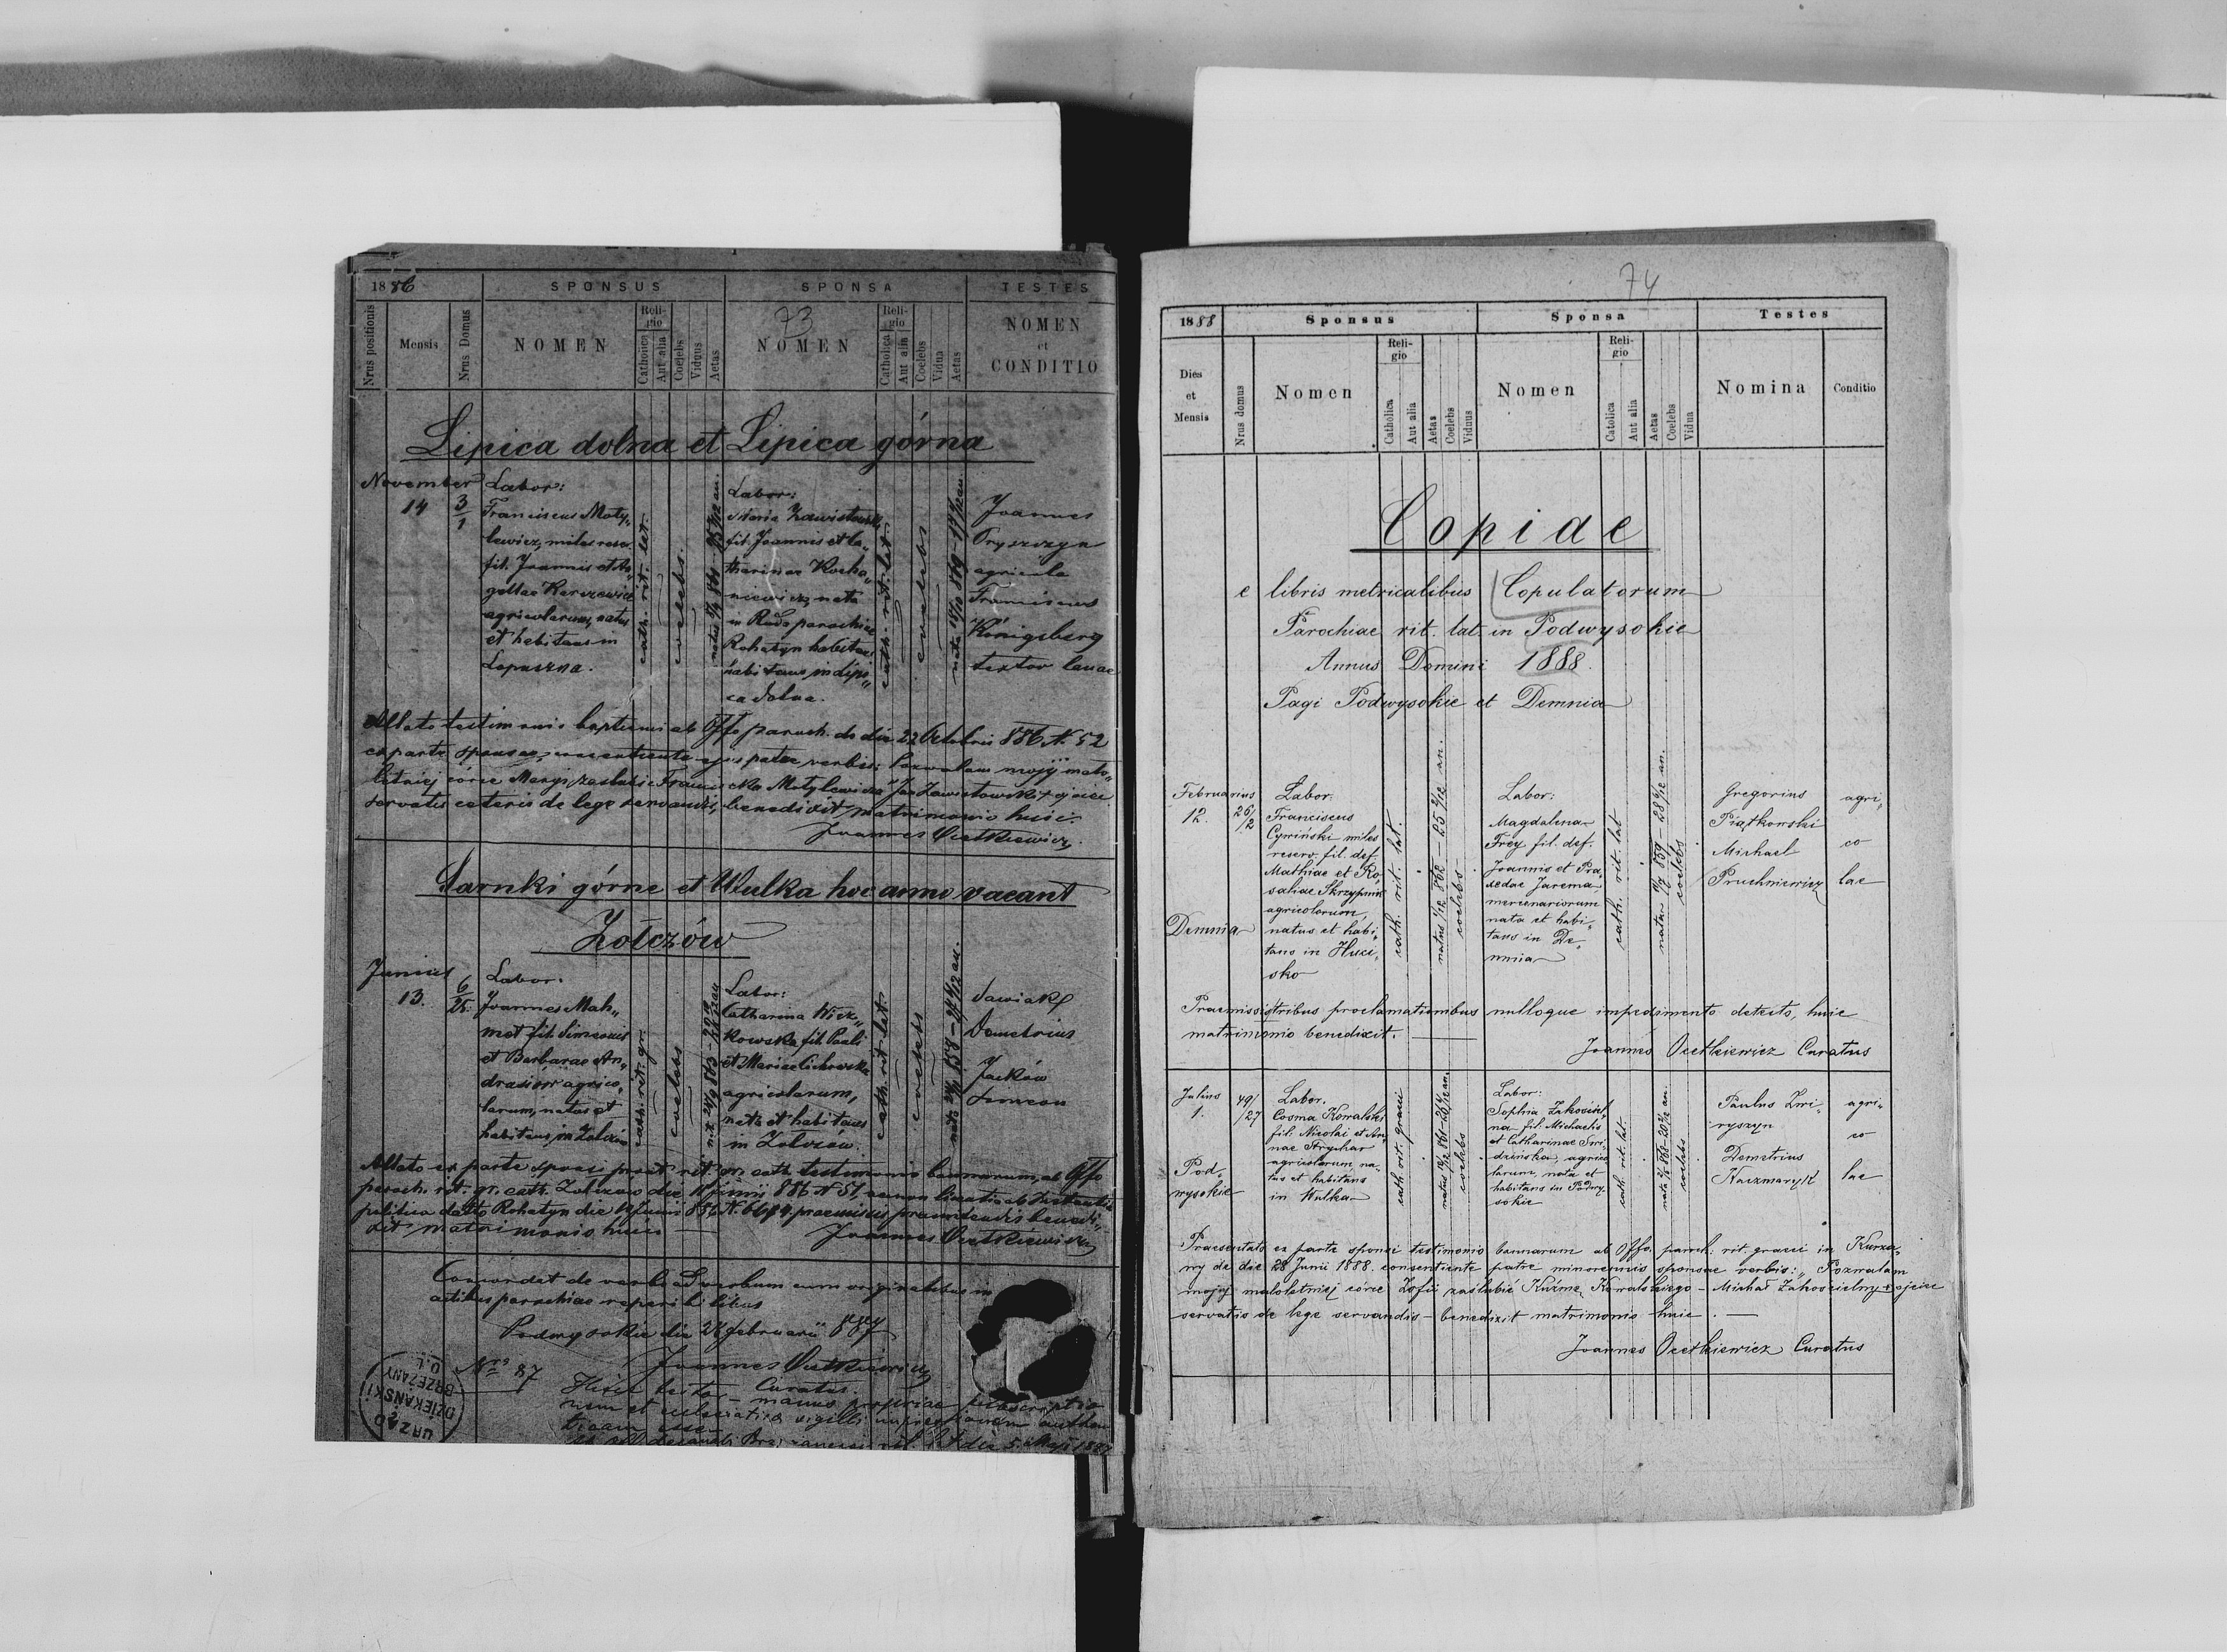 1886
SPONSUS
SPONSA
TESTES
Nrus positionis
Mensis
Nrus Domus
NOMEN
Religio
Catholica
Aut alia
Coelebs
Viduus
Aetas
73
NOMEN
Religio
Catholica
Aut alia
Coelebs
Vidua
Aetas
NOMEN
et
CONDITIO
Lipica dolna et Lipica górna
November
14
3/1
Labor:
Franciscus Moty„
lewicz, miles reser.
fil. Joannis et A
gathae
agricolarum, natus
et habitans in
Lopuszna.
cath. rit. lat.
coelebs.
Labor:
Maria Zawistowska
fil. Joannis et Ca„
tharinae Kocha„
niewicz, nata
in Ruda parochiae
Rohatyn
habitans in Lipi„
ca dolna.
cath. rit. lat.
coelebs
Joannes
Pryszczyn
agricola
Franciscus
Königsberg
textor lanae
Allato testimonio baptismi ab Offo paroch. de die 22 Octobris 886 N. 52
ex parte sponsae, consentiente ejus patre verbis: Pozwalam mojij mało„
letniej córce Maryi zaślubić Franciszka Motylewicza Jan Zawistowski + ojciec
servatis ceteris de lege servandis, benedixit matrimonio huic.
Joannes Ocetkiewicz.
Sarnki górne et Wulka hoc anno vacant
Żołczów
Junius
13.
6/25
Labor:
Joannes Mah„
met fil. Simeonis
et Barbarae An„
drasiow agrico„
larum, natus et
habitans in Żolczów
cath. rit. gr.
coelebs
Labor:
Catharina Wicz„
kowska fil. Pauli
et Mariae Cichowska
agricolarum,
nata et habitans
in Żolczów.
cath. rit. lat.
coelebs
Demetrius
Jacków
Simeon
Allato ex parte sponsi praet. rit. gr. cath. testimonio bannorum, ab Offo
paroch. rit. gr. cath. Żolczow die
politica datto Rohatyn die
dixit matrimonio huic
Joannes Ocetkiewicz
Concordat de verbo ad verbum cum originalibus in
actibus parochiae reperibilibus
Podwysokie die 24 februarii 887
Joannes Ocetkiewicz
Curatus.
Nro 87
manus propriae subscriptio
nem et ecclesiastici sigilli impressionem authen
ticam esse
URZĄD
DZIEKAŃSKI
O.Ł.
BRZEŻANY
74
1888
Sponsus
Sponsa
Testes
Dies
et
Mensis
Nrus domus
Nomen
Religio
Catholica
Aut alia
Aetas
Coelebs
Viduus
Nomen
Religio
Catolica
Aut alia
Aetas
Coelebs
Vidua
Nomina
Conditio
Copiae
e libris metricalibus Copulatorum
Parochiae rit. lat. in Podwysokie
Annus Domini 1888.
Pagi Podwysokie et Demnia
Februarius
12.
Demnia
26/2
Labor.
Franciscus
Cywiński miles
reserv. fil. def.
Mathiae et Ro„
saliae Skrzypnik
agricolarum,
natus et habi„
tans in Huci„
sko
cath. rit. lat.
natus 1/12 862 - 25 2/12 an.
coelebs
Labor:
Magdalena
Frey fil. def.
Joannis et Pra„
sedae Jarema
mercenariorum
nata et habi„
tans in De„
mnia
cath. rit. lat
coelebs
Gregorius
Piątkowski
Michael
Pruchniewicz
agri„
co
lae
Praemissis tribus proclamationibus nulloque impedimento detecto, huic
matrimonio benedixit.
Joannes Ocetkiewicz Curatus
Julius
1.
Podwysokie
49/27
Labor.
Cosma Kowalski
fil. Nicolai et An„
nae Strychar
agricolarum na„
tus et habitans
in Wulka
cath. rit. graeci
coelebs
Labor:
Sophia Zakościel
na fil. Michaelis
et Catharinae Świ„
dzińska, agrico
larum, nata et
habitans in Podwy„
sokie
cath. rit. lat.
coelebs
Paulus Zwi„
ryszyn
Demetrius
Kaczmaryk
agri„
co
lae
Praesentato ex parte sponsi testimonio bannorum ab Offo. paroch. rit. graeci in Kurza„
ny de die 28 Junii 1888. consentiente patre minorennis sponsae verbis: „Pozwalam
mojej małoletniej córce Zofii zaślubić Kuźmę Kowalskiego - Michał Zakościelny + ojciec
servatis de lege servandis - benedixit matrimonio huic.
Joannes Ocetkiewicz Curatus